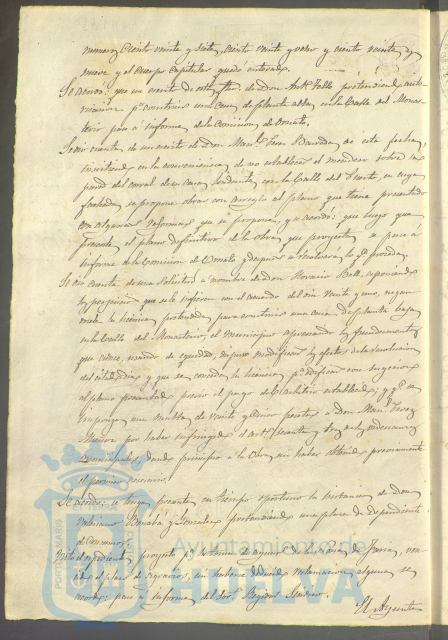 numeros Ciento veinte y siete, ciento veinte y ocho y ciento veinte y
nueve y el cuerpo capitular quedó enterado.
Se acordó: que un escrito de de don Antº pretendiendo
pª construir una Casa de planta alta, en la Calle del Monas-
terio pase á informe de la Comision de Ornato.
Se dió cuenta, de un escrito de Don Manl Perez de esta fecha,
insistiendo en la conveniencia de no establecer el sobre la
pared del corral de su casa lindante con la Calle del Puerto, en cuya
fachada se propone obrar con arreglo al plano que tiene presentado
con algunas reformas que se propone, y se acordó: que luego que
presente el plano definitivo de la obra, que proyecta, se pase a
informe de la Comision de Ornato y despues se resolverá lo qe proceda.
Se dió cuenta de una solicitud á nombre de Don Horacio Bell, esponiendo
los perjuicios que se le infieren con el acuerdo del dia veinte y uno, negan-
dole la licencia pretendida para construir una casa de planta baja
en la Calle del Monasterio, el municipio apreciando los fundamentos
que aduce, usando de equidad, modificar los efectos de la resolucion
del citado dia y que se conceda la licencia pª edificar con sugecion
al plano presentado previo el pago del arbitrio establecido; y qe se
imponga una multa de veinte y cinco pesetas á Don Manl Perez
por haber infringido el artº sesenta y dos de las ordenanzas
municipales, dando principio á la Obra sin haber obtenido previamente
el permiso necesario.
Se acordó: se tenga presente, en tiempo oportuno la instancia de don
y Gonzalez pretendiendo una plaza de dependiente
de Consumos.
Visto el expediente, proyecto de
el plazo de sin haberse deducido reclamacion alguna se
acordó: pase á informe del Sor Regidor Sindico.
El
Ayuntamiento de
HUELVA
PORTUS MARIS